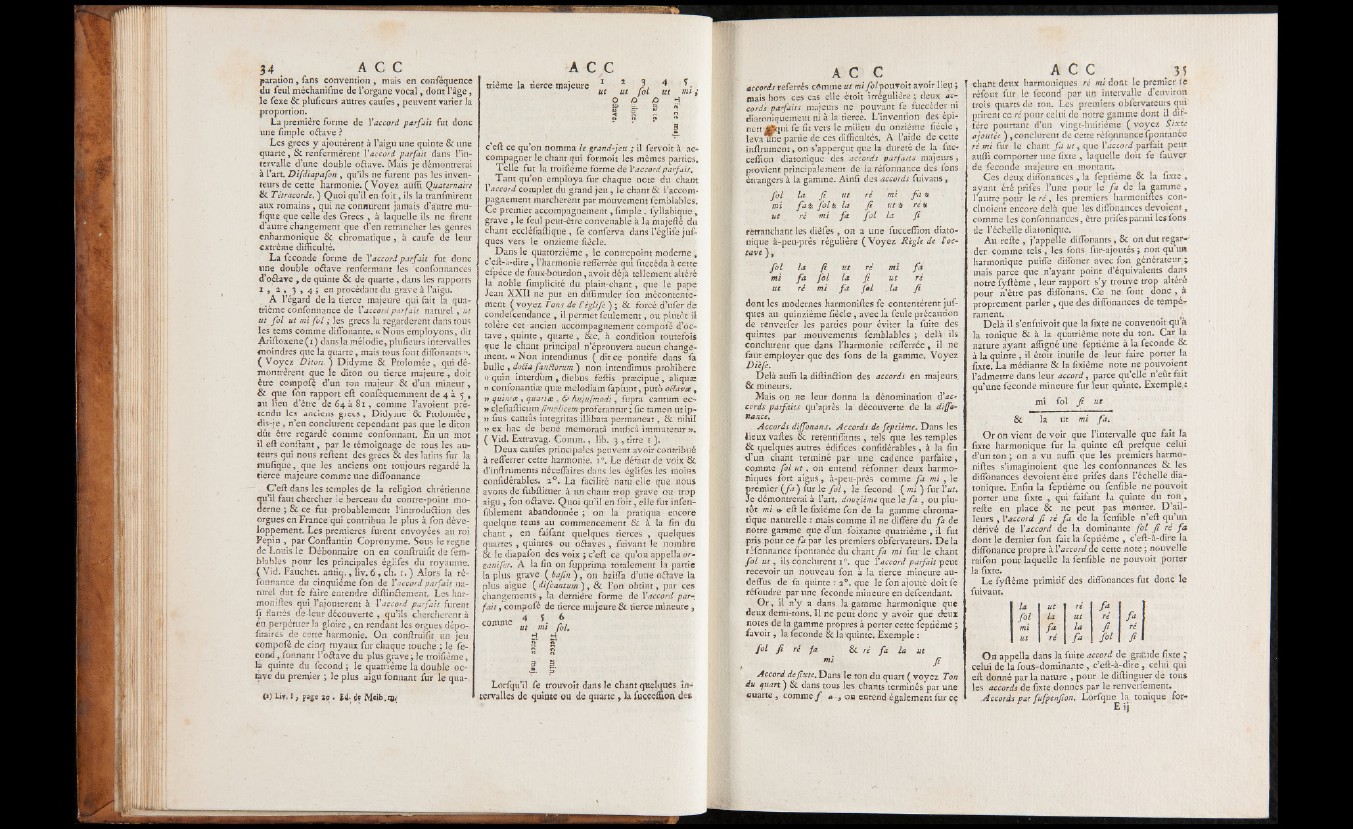 34 A C C
paration, sans convention, mais en conséquence
du seul méchanisme de l'organe vocal, dont l'âge,
le sexe & plusieurs autres causes, peuvent varier la
proportion.
La première forme de l'accord parfait fut donc
une simple octave?
Les grecs y ajoutèrent à l'aigu une quinte & une
quarte, & renfermèrent l'accord parfait dans l'in-
tervalle d'une double octave. Mais je démontrerai
à l'art. Disdiapason, qu'ils ne furent pas les inven-
teurs de cette harmonie. (Voyez aussi Quaternaire
& Tétracorde.) Quoi qu'il en soit, ils la transmirent
aux romains, qui ne connurent jamais d'autre mu-
sique que celle des Grecs, à laquelle ils ne firent
d'autre changement que d'en retrancher les genres
enharmonique & chromatique, à cause de leur
extrême difficulté.
La seconde forme de l'accord parfait fut donc
une double octave renfermant les consonnances
d'octave, de quinte & de quarte, dans les rapports
1, 2, 3, 4; en procédant du grave à l'aigu.
A l'égard de la tierce majeure qui fait la qua-
trième consonnance de l'accord parfait naturel, ut
ut sol ut mi sol; les grecs la regarderent dans tous
les tems comme dissonante. « Nous employons, dit
Aristoxene (1) dans la mélodie, plusieurs intervalles
moindres que la quarte, mais tous sont dissonants ».
(Voyez Diton.) Didyme & Ptolomée, qui dé-
montrèrent que le diton ou tierce majeure, doit
être composé d'un ton majeur & d'un mineur,
& que son rapport est conséquemment de 4 à 5,
au lieu d'être de 64 à 81, comme l'avoient pré-
tendu les anciens grecs, Didyme & Ptolomée,
dis-je, n'en conclurent cependant pas que le diton
dût être regardé comme consonnant. En un mot
il est constant, par le témoignage de tous les au-
teurs qui nous restent des grecs & des latins sur la
musique, que les anciens ont toujours regardé la
tierce majeure comme une dissonnance
C'est dans les temples de la religion chrétienne
qu'il faut chercher le berceau du contre-point mo-
derne; & ce fut probablement l'introduction des
orgues en France qui contribua le plus à son déve-
loppement. Les premieres furent envoyées au roi
Pepin, par Constantin Copronyme. Sous le regne
de Louis le Débonnaire on en construisit de sem-
blables pour les principales églises du royaume.
(Vid. Fauchet. antiq., liv. 6, ch. 1.) Alors la ré-
sonnance du cinquième son de l'accord parfait na-
turel dut se faire entendre distinctement. Les har-
monistes qui l'ajouterent à l'accord parfait furent
si flattés de leur découverte, qu'ils cherchèrent à
en perpétuer la gloire, en rendant les orgues dépo-
sitaires de cette harmonie. On construisit un jeu
composé de cinq tuyaux sur chaque touche; le se-
cond, sonnant l'octave du plus grave; le troisième,
la quinte du second; le quatrième la double oc-
tave du premier; le plus aigu sonnant sur le qua-
(1) Liv. I, page 20. Ed. de Meib.
A C C
trième la tierce majeure 1 2 3 4 5
ut ut sol ut mi;
octave. quinte. quarte. tierce maj.
c'est ce qu'on nomma le grand-jeu; il servoit à ac-
compagner le chant qui formoit les mêmes parties.
Telle fut la troisième forme de l'accord parfait.
Tant qu'on employa sur chaque note du chant
l'accord complet du grand jeu, le chant & l'accom-
pagnement marcherent par mouvement semblables.
Ce premier accompagnement, simple, syllabique,
grave, le seul peut-être convenable à la majesté du
chant ecclésiastique, se conserva dans l'église jus-
ques vers le onzieme siècle.
Dans le quatorzième, le contrepoint moderne,
c'est-à-dire, l'harmonie resserrée qui succéda à cette
espéce de faux-bourdon, avoit déjà tellement altéré
la noble simplicité du plain-chant, que le pape
Jean XXII ne put en dissimuler son mécontente-
ment (voyez Tons de l'église); & forcé d'user de
condescendance, il permet seulement, ou plutôt il
tolère cet ancien accompagnement composé d'oc-
tave, quinte, quarte, &c. à condition toutefois
que le chant principal n'éprouvera aucun change-
ment. « Non intendimus (dit ce pontife dans sa
bulle, docta sanctorum) non intendimus prohibere
» quin interdum, diebus festis præcipue, aliquæ
» consonantiæ quæ melodiam sapiunt, putà octavæ,
» quintæ, quartæ, & hujusmodi, supra cantum ec-
» clesiasticum simplicem proferantur; sic tamen ut ip-
» sius cantûs integritas illibata permaneat, & nihil
» ex hac de bene morata musicâ immutetur ».
(Vid. Extravag. Comm., lib. 3, titre 1).
Deux causes principales peuvent avoir contribué
à resserrer cette harmonie. 1°. Le défaut de voix &
d'instruments nécessaires dans les églises les moins
considérables. 2°. La facilité naturelle que nous
avons de substituer à un chant trop grave ou trop
aigu, son octave. Quoi qu'il en soit, elle fut insen-
siblement abandonnée; on la pratiqua encore
quelque tems au commencement & à la fin du
chant, en faisant quelques tierces, quelques
quartes, quintes ou octaves, suivant le nombre
& le diapason des voix; c'est ce qu'on appella or-
ganiser. A la fin on supprima totalement la partie
la plus grave (basin), on baissa d'une octave la
plus aigue (discantum), & l'on obtint, par ces
changements, la dernière forme de l'accord par-
fait, composé de tierce majeure & tierce mineure,
4 5 6
comme ut mi sol.
Tierce maj. Tierce min.
Lorsqu'il se trouvoit dans le chant quelques in-
tervalles de quinte ou de quarte, la succession des
A C C
accords resserrés comme ut mi sol pouvoit avoir lieu;
mais hors ces cas elle étoit irréguliére; deux ac-
cords parfaits majeurs ne pouvant se succéder ni
diatoniquement ni à la tierce. L'invention des épi-
nett qui se fit vers le milieu du onzième siècle,
leva une partie de ces difficultés. A l'aide de cette
instrument, on s'apperçut que la dureté de la suc-
cession diatonique des accords parfaits majeurs,
provient principalement de la résonnance des sons
étrangers à la gamme. Ainsi des accords suivans,
sol la si ut ré mi fa ♯
mi fa♯ sol♯ la si ut♯ ré♯
ut ré mi fa sol la si
retranchant les dièses, on a une succession diato-
nique à-peu-près régulière (Voyez Règle de l'oc-
tave),
sol la si ut ré mi fa
mi fa sol la si ut ré
ut ré mi fa sol la si
dont les modernes harmonistes se contentérent jus-
ques au quinzième siècle, avec la seule précaution
de renverser les parties pour éviter la suite des
quintes par mouvements semblables; delà ils
conclurent que dans l'harmonie resserrée, il ne
faut employer que des sons de la gamme. Voyez
Dièse.
Delà aussi la distinction des accords en majeurs
& mineurs.
Mais on ne leur donna la dénomination d'ac-
cords parfaits qu'après la découverte de la disso-
nance.
Accords dissonans. Accords de septième. Dans les
lieux vastes & retentissants, tels que les temples
& quelques autres édifices considérables, à la fin
d'un chant terminé par une cadence parfaite,
comme sol ut, on entend résonner deux harmo-
niques fort aigus, à-peu-près comme fa mi, le
premier (fa) sur le sol, le second (mi) sur l'ut.
Je démontrerai à l'art. douzième que le fa, ou plu-
tôt mi ♯ est le sixiéme son de la gamme chroma-
tique naturelle: mais comme il ne diffère du fa de
notre gamme que d'un soixante quatrième, il fut
pris pour ce fa par les premiers observateurs. De la
résonnance spontanée du chant fa mi sur le chant
sol ut, ils conclurent 1°. que l'accord parfait peut
recevoir un nouveau son à la tierce mineure au-
dessus de sa quinte: 2°. que le son ajouté doit se
résoudre par une seconde mineure en descendant.
Or, il n'y a dans la gamme harmonique que
deux demi-tons. Il ne peut donc y avoir que deux
notes de la gamme propres à porter cette septième;
savoir, la seconde & la quinte. Exemple:
sol si ré fa & ré fa la ut
mi si
Accord de sixte. Dans le ton du quart (voyez Ton
du quart) & dans tous les chants terminés par une
quarte, comme f , on entend également sur ce
A C C 35
chant deux harmoniques ré mi dont le premier se
résout sur le second par un intervalle d'environ
trois quarts de ton. Les premiers observateurs qui
prirent ce ré pour celui de notre gamme dont il dif-
fère pourtant d'un vingt-huitième (voyez Sixte
ajoutée), conclurent de cette résonnance spontanée
ré mi sur le chant fa ut, que l'accord parfait peut
aussi comporter une sixte, laquelle doit se sauver
de seconde majeure en montant.
Ces deux dissonances, la septième & la sixte,
ayant été prises l'une pour le fa de la gamme,
l'autre pour le ré, les premiers harmonistes con-
cluoient encore delà que les dissonances devoient,
comme les consonnances, être prises parmi les sons
de l'échelle diatonique.
Au reste, j'appelle dissonants, & on dut regar-
der comme tels, les sons sur-ajoutés; non qu'un
harmonique puisse dissoner avec son générateur;
mais parce que n'ayant point d'équivalents dans
notre systême, leur rapport s'y trouve trop altéré
pour n'être pas dissonans. Ce ne sont donc, à
proprement parler, que des dissonances de tempé-
rament.
Delà il s'ensuivoit que la sixte ne convenoit qu'à
la tonique & à la quatrième note du ton. Car la
nature ayant assigné une septième à la seconde &
à la quinte, il étoit inutile de leur faire porter la
sixte. La médiante & la sixième note ne pouvoient
l'admettre dans leur accord, parce qu'elle n'eût fait
qu'une seconde mineure sur leur quinte. Exemple:
mi sol si ut
& la ut mi fa.
Or on vient de voir que l'intervalle que fait la
sixte harmonique sur la quinte est presque celui
d'un ton; on a vu aussi que les premiers harmo-
nistes s'imaginoient que les consonnances & les
dissonances devoient être prises dans l'échelle dia-
tonique. Enfin la septième ou sensible ne pouvoit
porter une sixte, qui faisant la quinte du ton,
reste en place & ne peut pas monter. D'ail-
leurs, l'accord si ré fa de la sensible n'est qu'un
dérivé de l'accord de la dominante sol si ré fa
dont le dernier son fait la septième, c'est-à-dire la
dissonance propre à l'accord de cette note; nouvelle
raison pour laquelle la sensible ne pouvoit porter
la sixte.
Le systême primitif des dissonances fut donc le
suivant.
la | ut | ré | fa |
sol | la | ut | ré | fa
mi | fa | la | si | ré
ut | ré | fa | sol | si
On appella dans la suite accord de grande sixte,
celui de la sous-dominante, c'est-à-dire, celui qui
est donné par la nature, pour le distinguer de tous
les accords de sixte donnés par le renversement.
Accords par suspension. Lorsque la tonique sor-
E ij